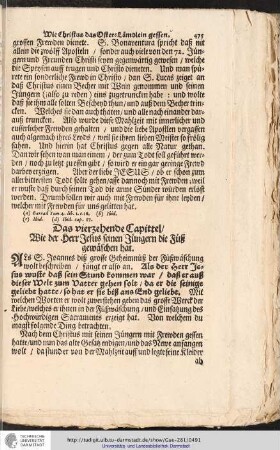 Wie Christus das Oster-Lämblein gessen. 475
grossen Frewden dienete. S. Bonaventura spricht daß nit
allein die zwölff Aposteln / sonder auch viel von den 72. Jün-
gern und Freunden Christi seyen gegenwärtig gewesen / welche
die Speysen auff trugen und Christo dieneten. Und man spü-
ret ein sonderliche Frewd in Christo / dan S. Lucas zeiget an
daß Christus einen Becher mit Wein genommen und seinen
Jüngern (also zu reden) eins zugetruncken habe : und wolt
daß sie ihm alle solten Bescheyd thun / und auß dem Becher trin-
cken. Welches sie auch thaten / und alle nach einander dar-
auß truncken. Also wurde diese Mahlzeit mit innerlicher und
eusserlicher Frewden gehalten / und die liebe Apostlen vergassen
auch allgemach ihres Leids / weil sie ihren lieben Meister so frölig
sahen. Und hierin hat Christus gegen alle Natur gethan.
Dan wir sehen wan man einen / der zum Todt soll geführt wer-
den / noch zu letzt zuessen gibt / so wird er ein gar geringe Frewd
darben erzeigen. Aber der liebe JESUS / ob er schon zum
aller bittersten Todt solte gehen / asse dannoch mit Frewden / weil
er wuste daß durch seinen Tod die arme Sünder würden erlöst
werden. Drumb sollen wir auch mit Frewden für ihm leyden /
welcher mit Frewden für uns gelitten hat.
Das vierzehende Capittel /
Wie der Herr Jesus seinen Jüngern die Füß
gewaschen hat.
Als S. Joannes diß grosse Geheimnüß der Füßwäschung
wolt beschreiben / fangt er also an. Als der Herr Je-
sus wuste daß sein Stund kommen war / daß er auß
dieser Welt zum Vatter gehen solt / da er die seinige
geliebt hatte / so hat er sie biß ans End geliebt. Mit
welchen Worten er wolt zu verstehen geben das grosse Werck der
Liebe / welches er ihnen in der Füßwäschung / und Einsatzung des
Hochwürdigen Sacraments erzeigt hat. Von welchem du
magst folgende Ding betrachten.
Nach dem Christus mit seinen Jüngern mit Frewden gessen
hatte / und nun das alte Gesatz endigen / und das Newe anfangen
wolt / da stund er von der Mahlzeit auff und legte seine Kleider
ab
TECHNISCHE UNIVERSITÄT DARMSTADT
http://tudigit.ulb.tu-darmstadt.de/show/Gue-2811/0491
Universitäts- und Landesbibliothek Darmstadt